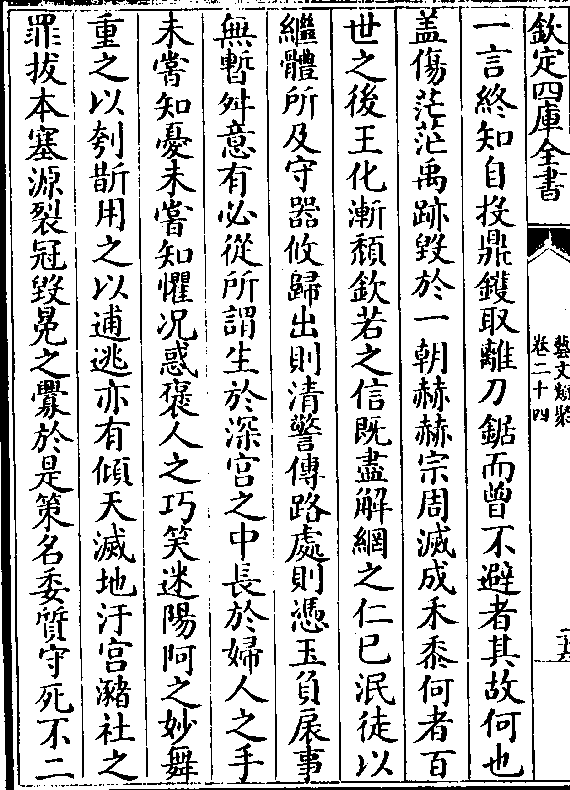 欽定四庫全書
藝文類聚
卷二十四
一言終知自投鼎鑊取離刀鋸而曾不避者其故何也
盖傷茫茫禹跡毀於一朝赫赫宗周滅成禾黍何者百
世之後王化漸頽欽若之信既盡解網之仁已泯徒以
繼體所及守器攸歸出則清警傳路處則憑玉負扆事
無暫舛意有必從所謂生於深宮之中長於婦人之手
未嘗知憂未嘗知懼况惑褒人之巧笑迷陽阿之妙舞
重之以刳斮用之以逋逃亦有傾天滅地汙宮瀦社之
罪拔本塞源裂冠毀冕之釁於是策名委質守死不二